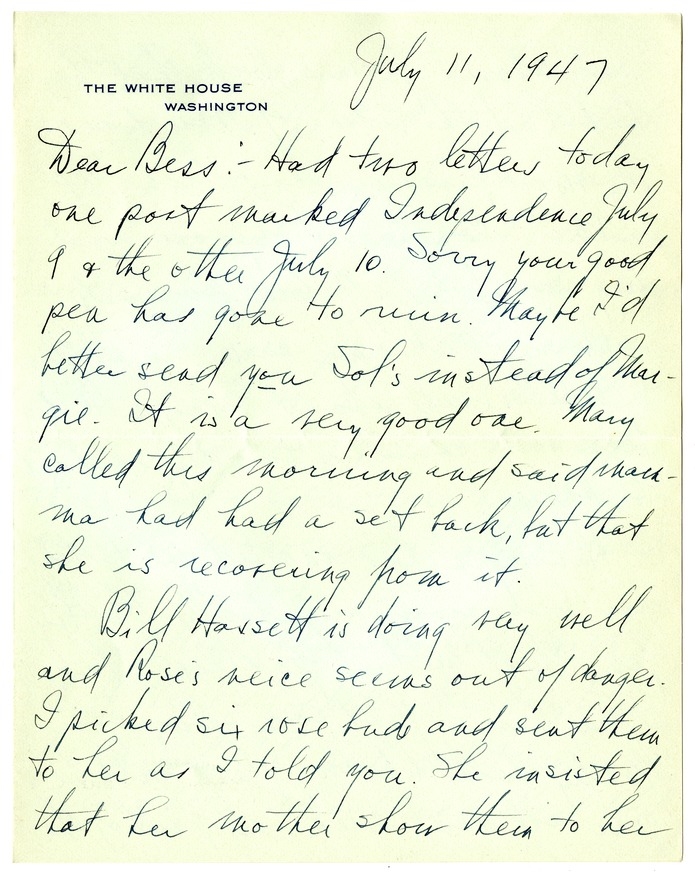 July 11, 1947
THE WHITE HOUSE
WASHINGTON
Dear Bess:- Had two letters today
one post marked Independence July
9 & the other July 10. Sorry your good
pen has gone to ruin. Maybe I'd
better send you Sol's instead of Mar-
gie. It is a very good one. Mary
called this morning and said mam-
ma had had a set back, but that
she is recovering from it.
Bill Hassett is doing very well
and Rose's neice seems out of danger.
I picked six rose buds and sent them
to her as I told you. She insisted
that her mother show them to her